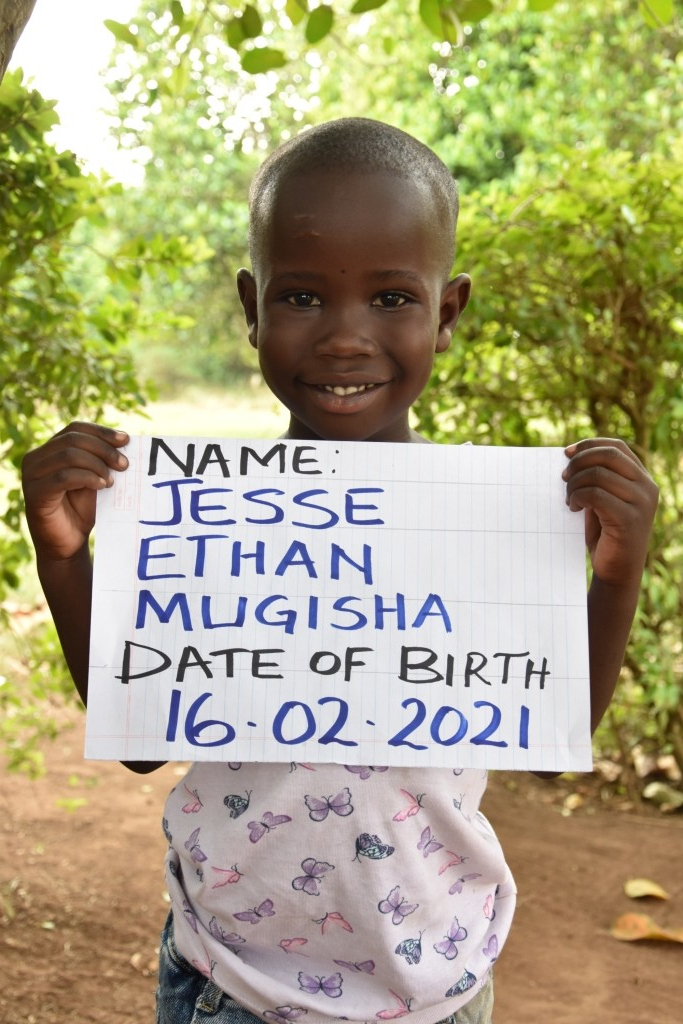 NAME:
JESSE
ETHAN
MUGISHA
DATE OF BIRTH
16.02.2021